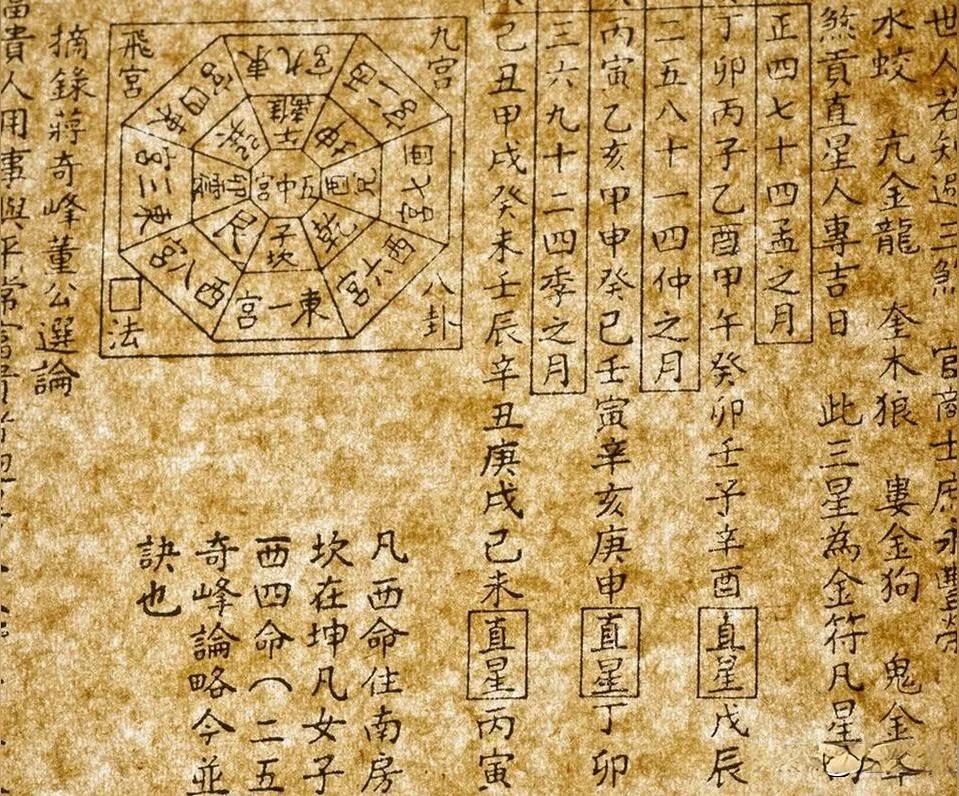 世人若知過三煞 官商士
水蛟 亢金龍 奎木狼 婁金狗 鬼金羊
煞貢直星人專吉日 此三星為金符凡星
正四七十四孟之月
丁卯丙子乙酉甲午癸卯壬子辛酉直星戊辰
二五八十一四仲之月
丙寅乙亥甲申癸巳壬寅辛亥庚申直星丁卯
三六九十二四季之月
己丑甲戌癸未壬辰辛丑庚戌己未直星丙寅
九宮
八卦
飛宮
法
東九宮
西七宮
西六宮
東一宮
東三宮
坤
兌酉
乾
子坎
艮
五中宮
凡西命住南房
坎在坤凡女子
西四命（二五
奇峰論略今並
訣也
摘錄蔣奇峰董公選論
富貴人用事與平常富貴者